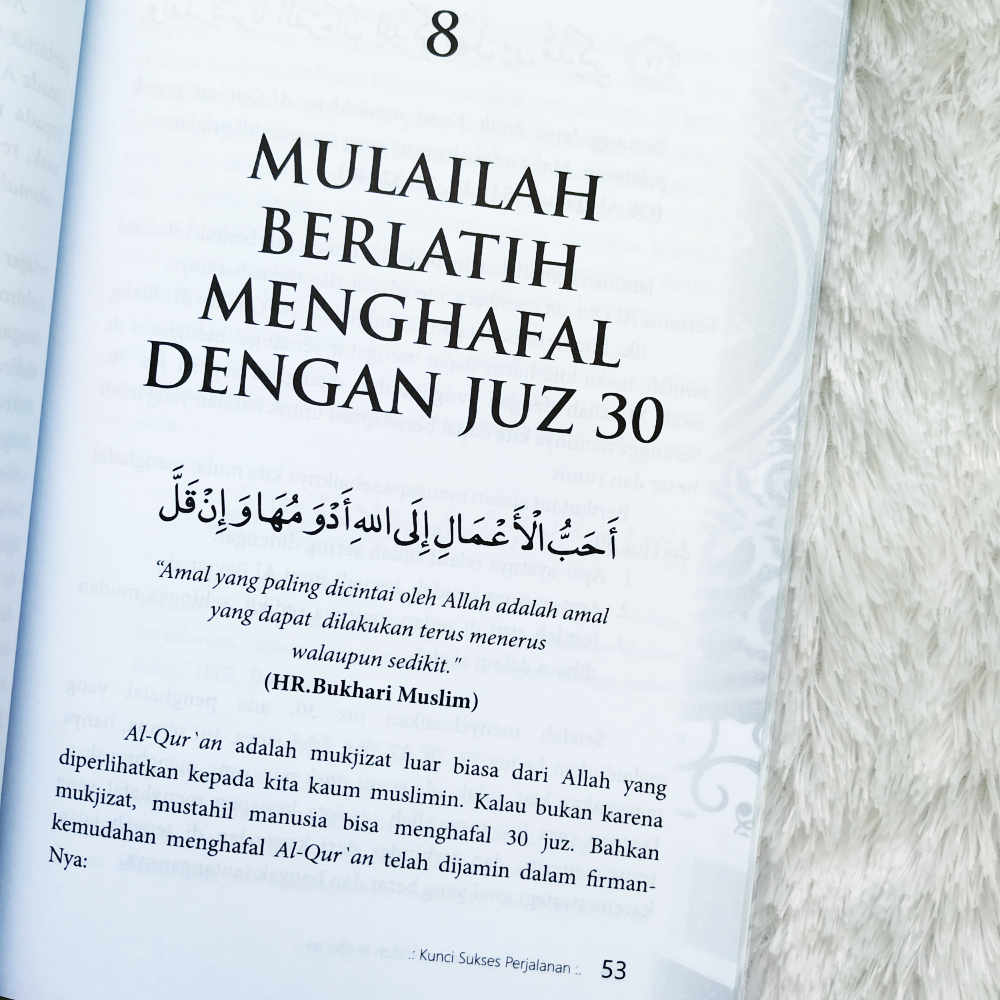 8
MULAILAH
BERLATIH
MENGHAFAL
DENGAN JUZ 30
أَحَبُّ الْأَعْمَالِ إِلَى اللهِ أَدْوَمُهَا وَإِنْ قَلَّ
“Amal yang paling dicintai oleh Allah adalah amal
yang dapat dilakukan terus menerus
walaupun sedikit."
(HR.Bukhari Muslim)
Al-Qur`an adalah mukjizat luar biasa dari Allah yang
diperlihatkan kepada kita kaum muslimin. Kalau bukan karena
mukjizat, mustahil manusia bisa menghafal 30 juz. Bahkan
kemudahan menghafal Al-Qur`an telah dijamin dalam firman-
Nya:
.: Kunci Sukses Perjalanan :. 53